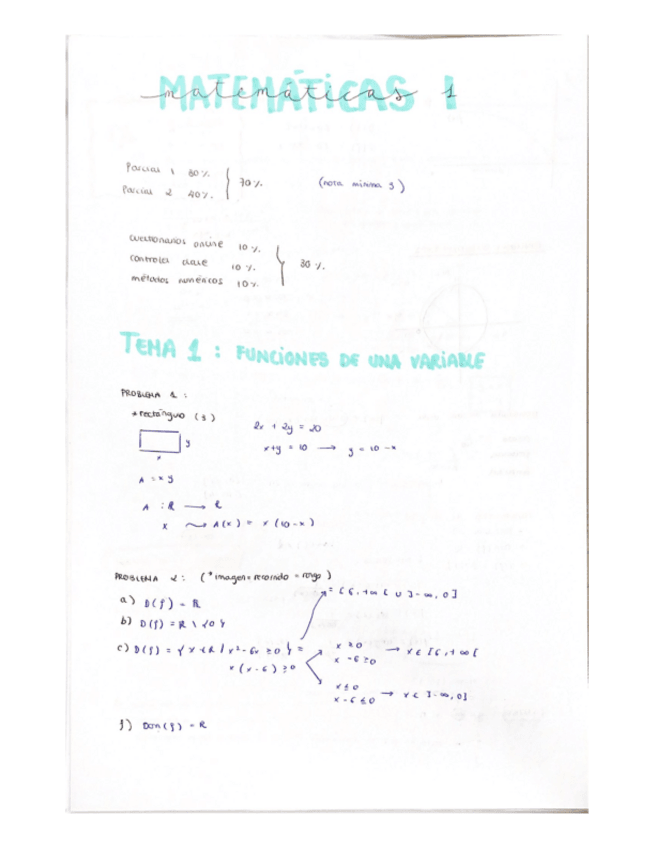 MATEMÁTICAS 1
matemáticas 1
Parcial 1 30%
Parcial 2 40%
70% (nota mínima 3)
cuestionarios online 10%
controles clase 10%
métodos numéricos 10%
30%
TEMA 1: FUNCIONES DE UNA VARIABLE
PROBLEMA 1:
* rectángulo (1)
2x + 2y = 20
x+y = 10 → y = 10 - x
y
x
A = x y
A : R → R
x ⤳ A(x) = x (10-x)
PROBLEMA 2: (* imagen = recorrido = rango)
a) D(f) = R
b) D(f) = R \ {0}
c) D(f) = {x ∈ R / x² - 6x ≥ 0} = [6, +∞[ ∪ ]-∞, 0]
x(x-6) ≥ 0
x ≥ 0
x - 6 ≥ 0 → x ∈ [6, +∞[
x ≤ 0
x - 6 ≤ 0 → x ∈ ]-∞, 0]
f) Dom(f) = R